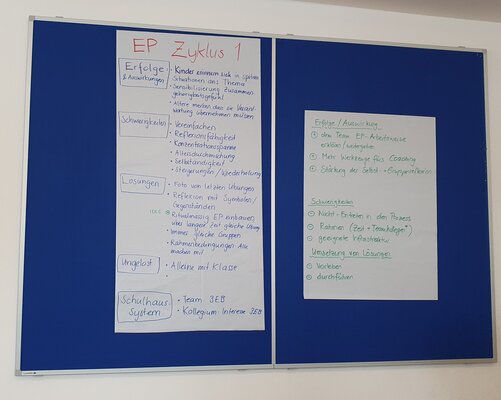 EP Zyklus 1
Erfolge
& Auswirkungen
• Kinder erinnern sich in späteren
Situationen ans Thema
• Sensibilisierung Zusammen-
gehörigkeitsgefühl
• Ältere merken dass sie Verant-
wortung übernehmen müssen
Schwierigkeiten
• Vereinfachen
• Reflexionsfähigkeit
• Konzentrationsspanne
• Altersdurchmischung
• Selbständigkeit
• Steigerungen / Wiederholung
Lösungen
• Foto von letzten Übungen
• Reflexion mit Symbolen/
Gegenständen
• Ritualmässig EP einbauen,
über längere Zeit gleiche Übung
• Immer gleiche Gruppen
• Rahmenbedingungen: Alle
machen mit
Ungelöst
• Alleine mit Klasse
Schulhaus-
System
• Team
• Kollegium: Interesse
Erfolge / Auswirkung
dem Team EP-Arbeitsweise
erklären / weitergeben
Mehr Werkzeuge fürs Coaching
Stärkung der Selbst- + Gruppenreflexion
Schwierigkeiten
Nicht-Eintreten in den Prozess
Rahmen (Zeit + Teamkollegen*)
geeignete Infrastruktur
Umsetzung von Lösungen
Vorleben
durchführen